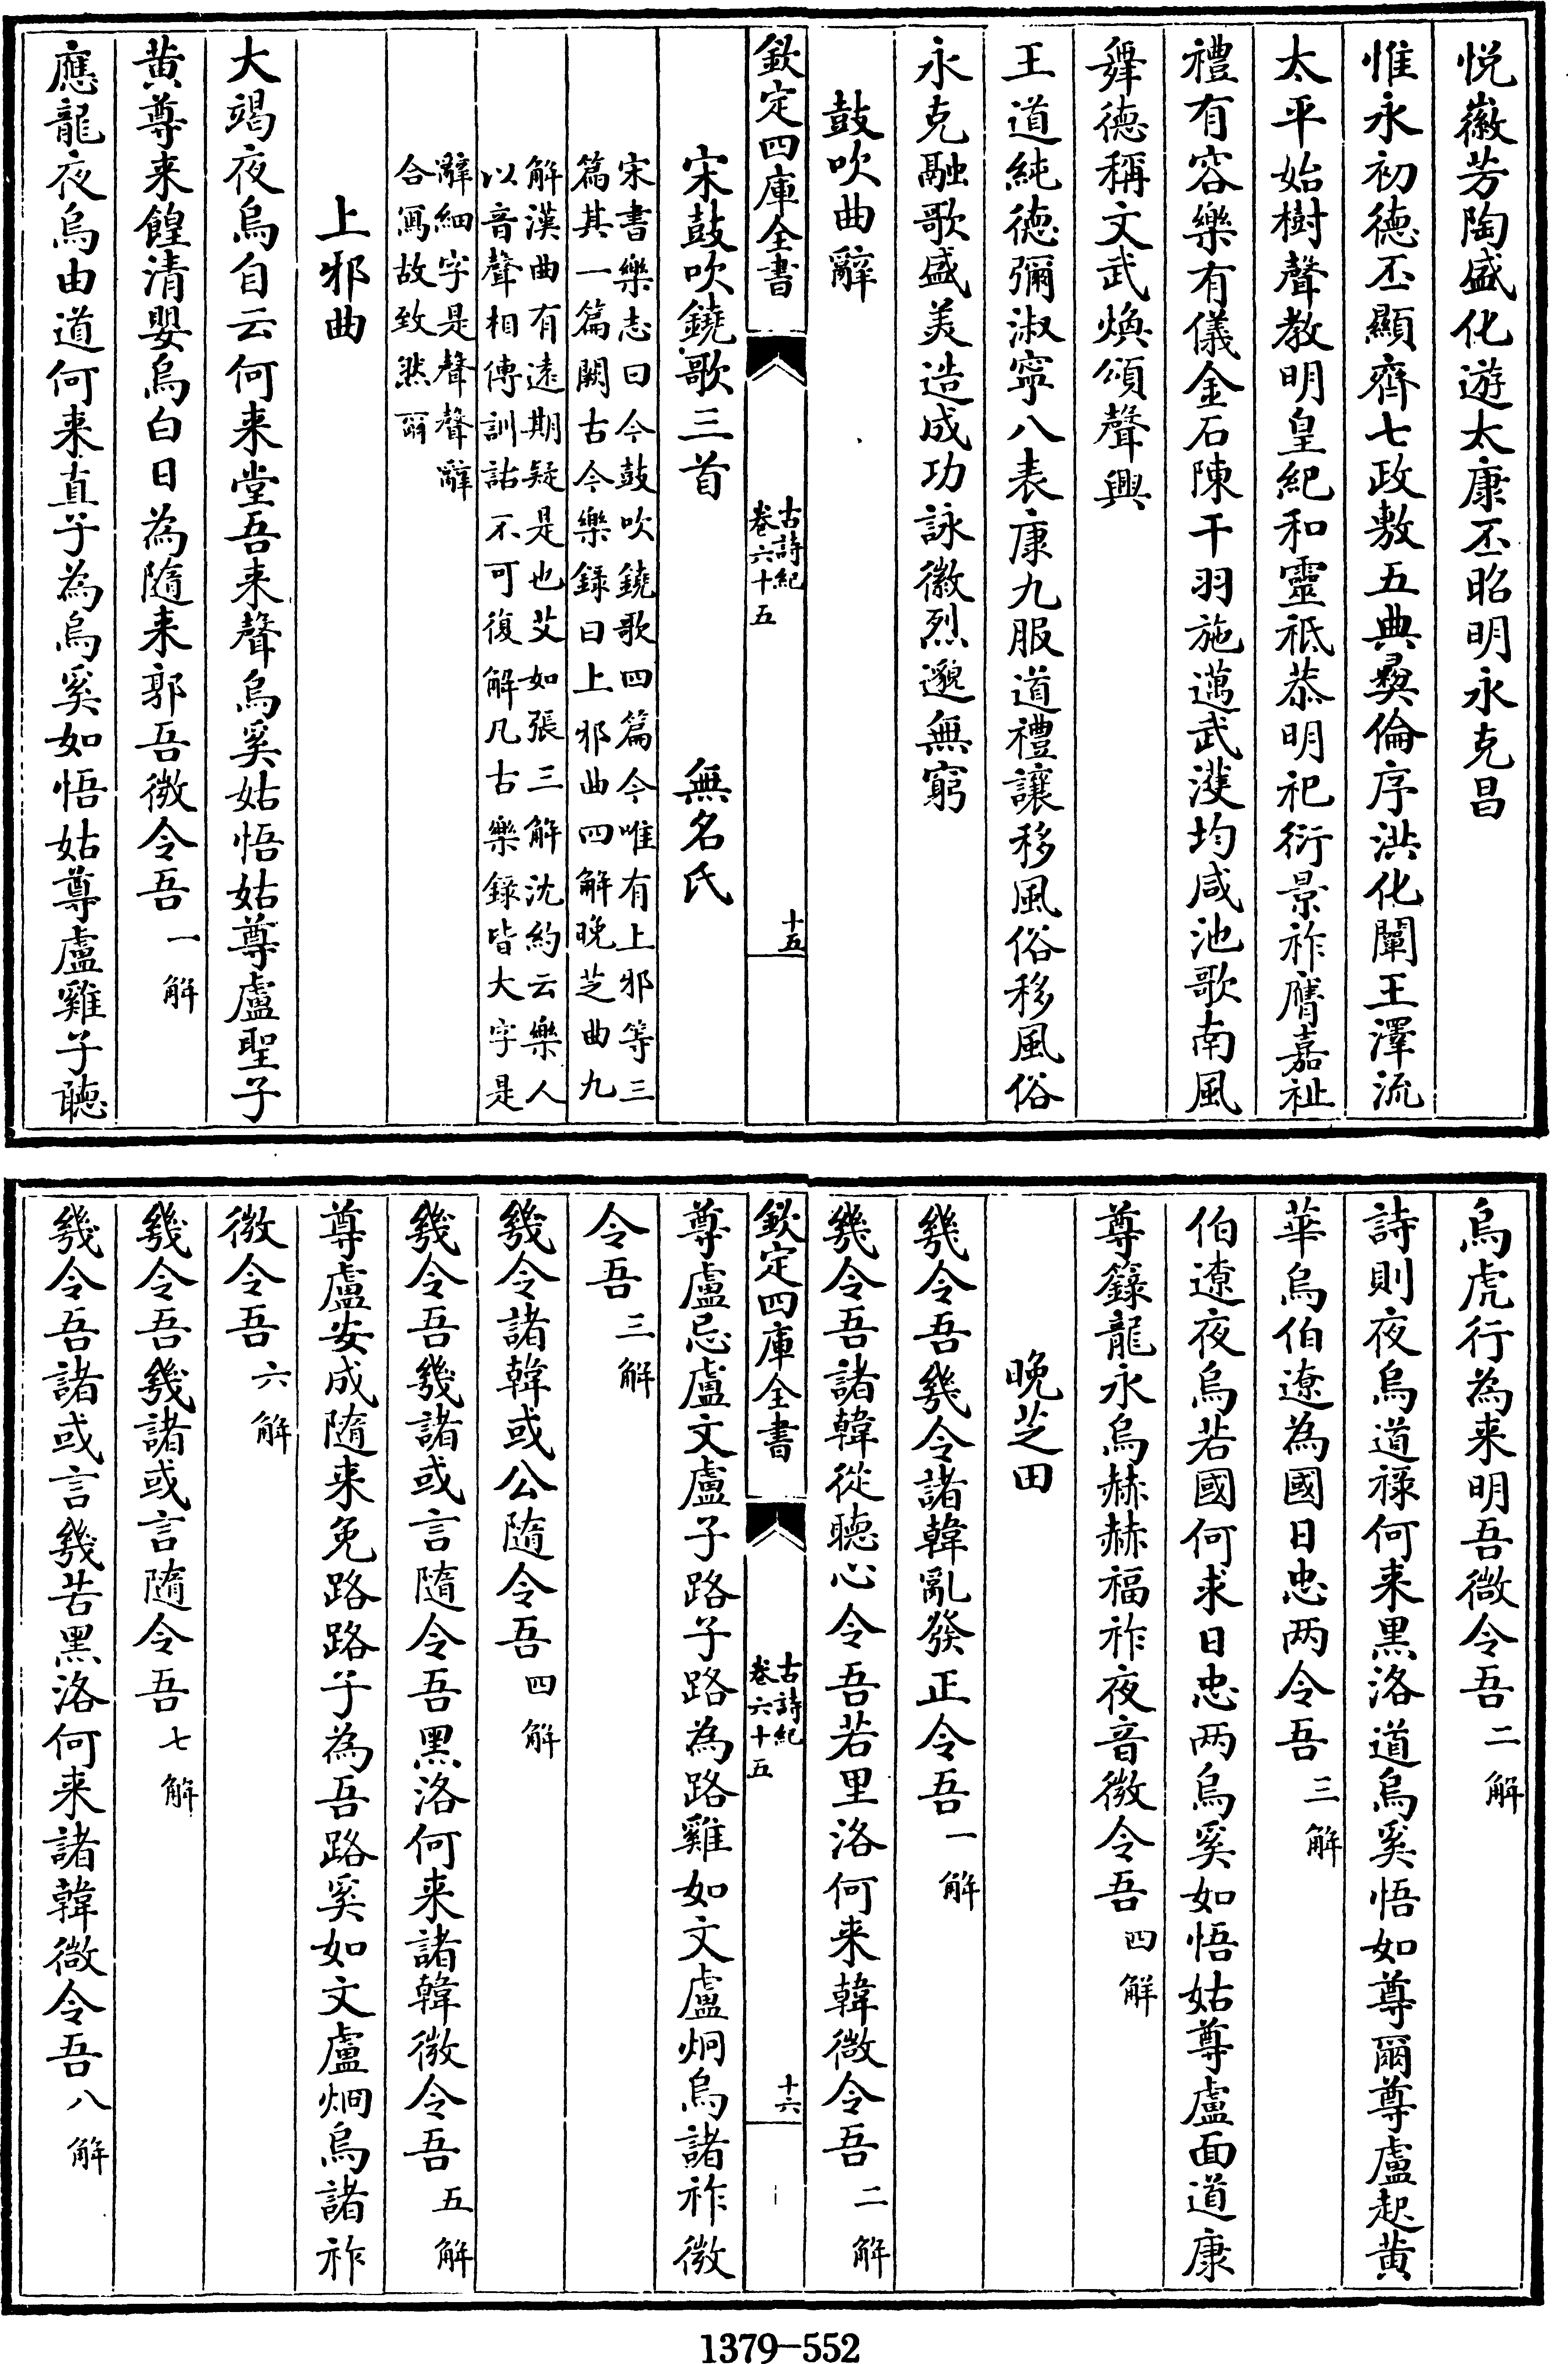 悦徽芳陶盛化遊太康丕昭明永克昌
惟永初德丕顯齊七政敷五典彝倫序洪化闡王澤流
太平始樹聲教明皇紀和靈祗恭明祀衍景祚膺嘉祉
禮有容樂有儀金石陳干羽施邁武濩均咸池歌南風
舞德稱文武煥頌聲興
王道純德彌淑寧八表康九服道禮讓移風俗移風俗
永克融歌盛美造成功詠徽烈邈無窮
鼓吹曲辭
欽定四庫全書
古詩紀
卷六十五
十五
宋鼓吹鐃歌三首 無名氏
宋書樂志曰今鼓吹鐃歌四篇今唯有上邪等三
篇其一篇闕古今樂錄曰上邪曲四解晚芝曲九
解漢曲有遠期疑是也艾如張三解沈約云樂人
以音聲相傳訓詁不可復解凡古樂錄皆大字是
辭細字是聲聲辭
合寫故致然爾
上邪曲
大竭夜烏自云何来堂吾来聲烏奚姑悟姑尊盧聖子
黄尊来餭清嬰烏白日為隨来郭吾微令吾 一解
應龍夜烏由道何来直子為烏奚如悟姑尊盧雞子聽
烏虎行為来明吾微令吾 二解
詩則夜烏道祿何来黑洛道烏奚悟如尊爾尊盧起黄
華烏伯遼為國日忠两令吾 三解
伯遼夜烏若國何求日忠两烏奚如悟姑尊盧面道康
尊籙龍永烏赫赫福祚夜音微令吾 四解
晚芝田
幾令吾幾令諸韓亂發正令吾 一解
幾令吾諸韓從聽心令吾若里洛何来韓微令吾 二解
欽定四庫全書
古詩紀
卷六十五
十六
尊盧忌盧文盧子路子路為路雞如文盧炯烏諸祚微
令吾 三解
幾令諸韓或公隨令吾 四解
幾令吾幾諸或言隨令吾黑洛何来諸韓微令吾 五解
尊盧安成隨来免路路子為吾路奚如文盧炯烏諸祚
微令吾 六解
幾令吾幾諸或言隨令吾 七解
幾令吾諸或言幾苦黑洛何来諸韓微令吾 八解
1379-552